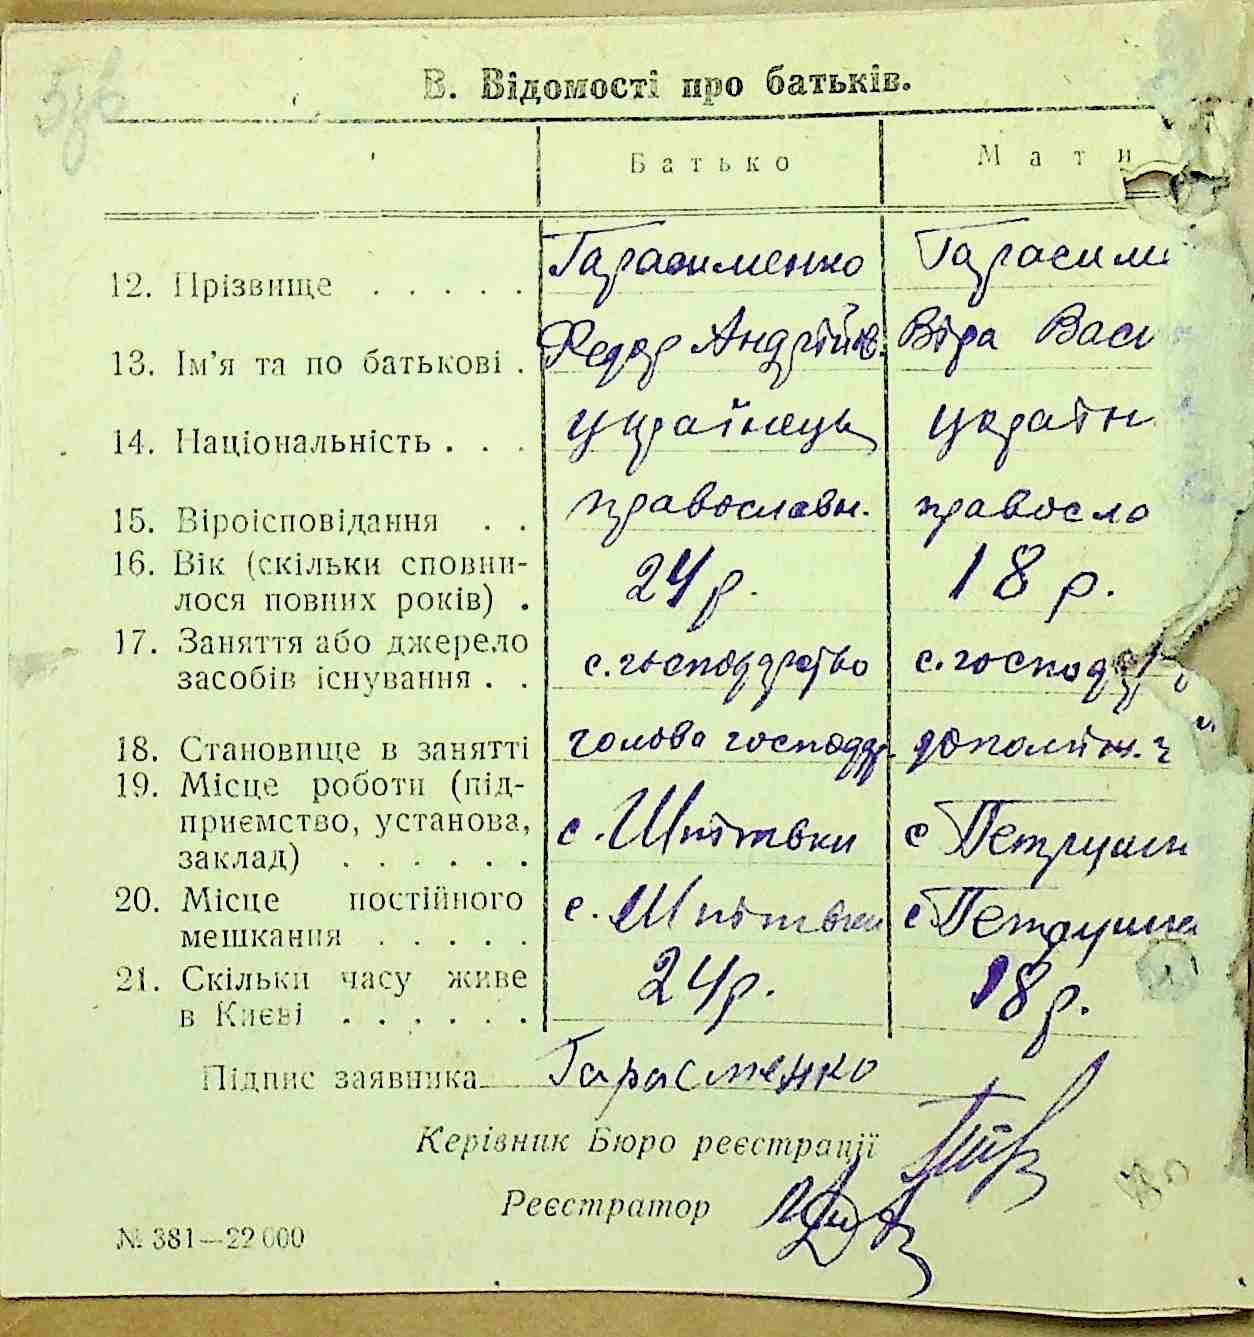 В. Відомості про батьків.
Батько Мати
12. Прізвище . . . . . Гарасименко Гарасим
13. Ім'я та по батькові . Федор Андрійов. Віра Васи
14. Національність . . . українець україн
15. Віроісповідання . . православн. правосла
16. Вік (скільки сповни-
лося повних років) . 24 р. 18 р.
17. Заняття або джерело
засобів існування . . с. господарство с. господар
18. Становище в занятті голова господар. допоміж. ч
19. Місце роботи (під-
приємство, установа,
заклад) . . . . . . с. Шпітьки с Петруши
20. Місце постійного
мешкання . . . . . с. Шпітьки с Петрушки
21. Скільки часу живе
в Києві . . . . . . 24 р. 18 р.
Підпис заявника Гарасменко
Керівник Бюро реєстрації
Реєстратор
№ 381—22 000